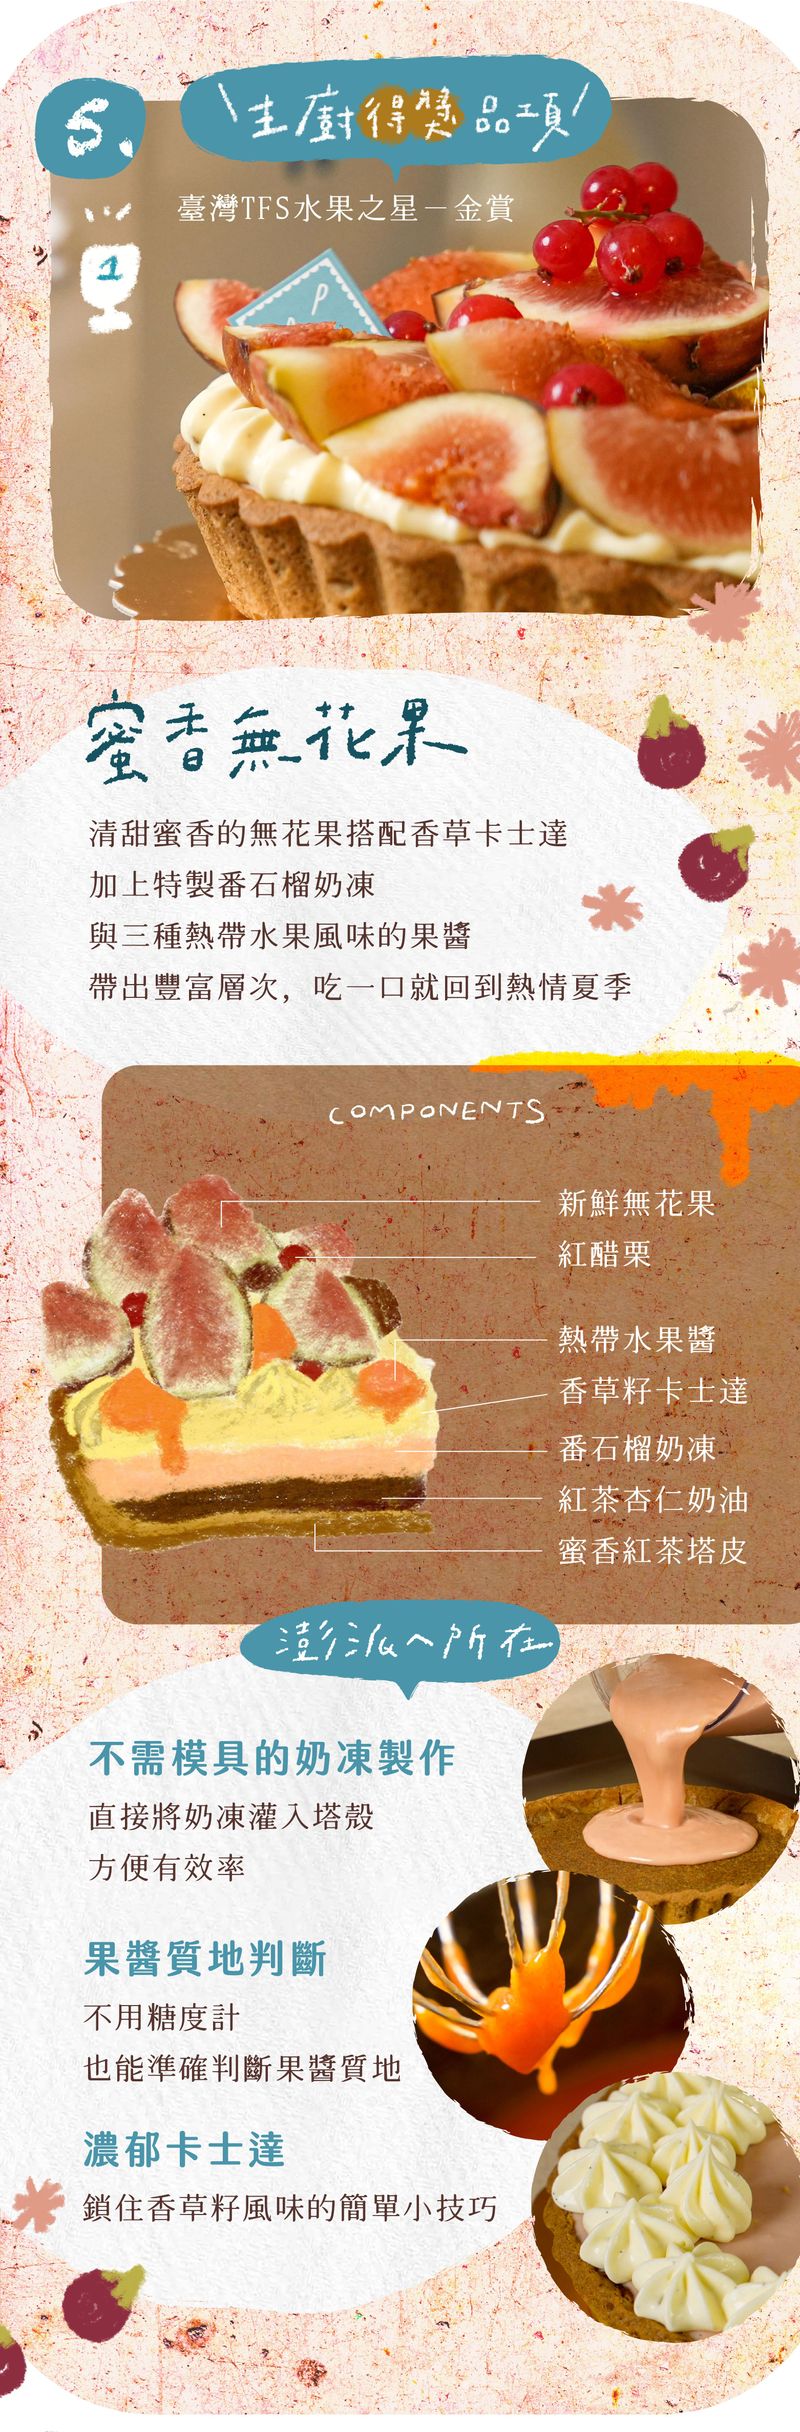 5.
生廚得獎品項
臺灣TFS水果之星－金賞
1
P
蜜香無花果
清甜蜜香的無花果搭配香草卡士達
加上特製番石榴奶凍
與三種熱帶水果風味的果醬
帶出豐富層次，吃一口就回到熱情夏季
COMPONENTS
新鮮無花果
紅醋栗
熱帶水果醬
香草籽卡士達
番石榴奶凍
紅茶杏仁奶油
蜜香紅茶塔皮
澎派へ所在
不需模具的奶凍製作
直接將奶凍灌入塔殼
方便有效率
果醬質地判斷
不用糖度計
也能準確判斷果醬質地
濃郁卡士達
鎖住香草籽風味的簡單小技巧